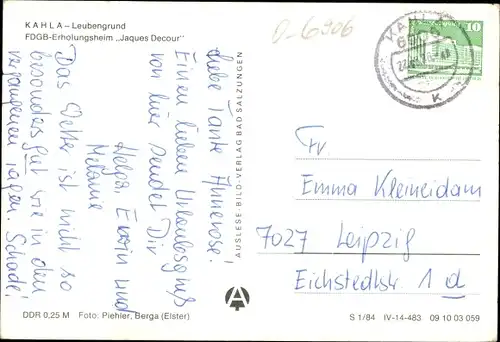 KAHLA – Leubengrund
FDGB-Erholungsheim „Jaques Decour"
Liebe Tante Annerose!
Einen lieben Urlaubsgruß
von hier sendet Dir
Helga, Erwin und
Melanie
Das Wetter ist nicht so
besonders gut wie in den
vergangenen Tagen. Schade!
AUSLESE-BILD-VERLAG BAD SALZUNGEN
D-6906
KAHLA
10
K
Fr.
Emma Kleineidam
7027 Leipzig
Eichstedtstr. 1 d
DDR 0,25 M Foto: Piehler, Berga (Elster)
S 1/84 IV-14-483 09 10 03 059